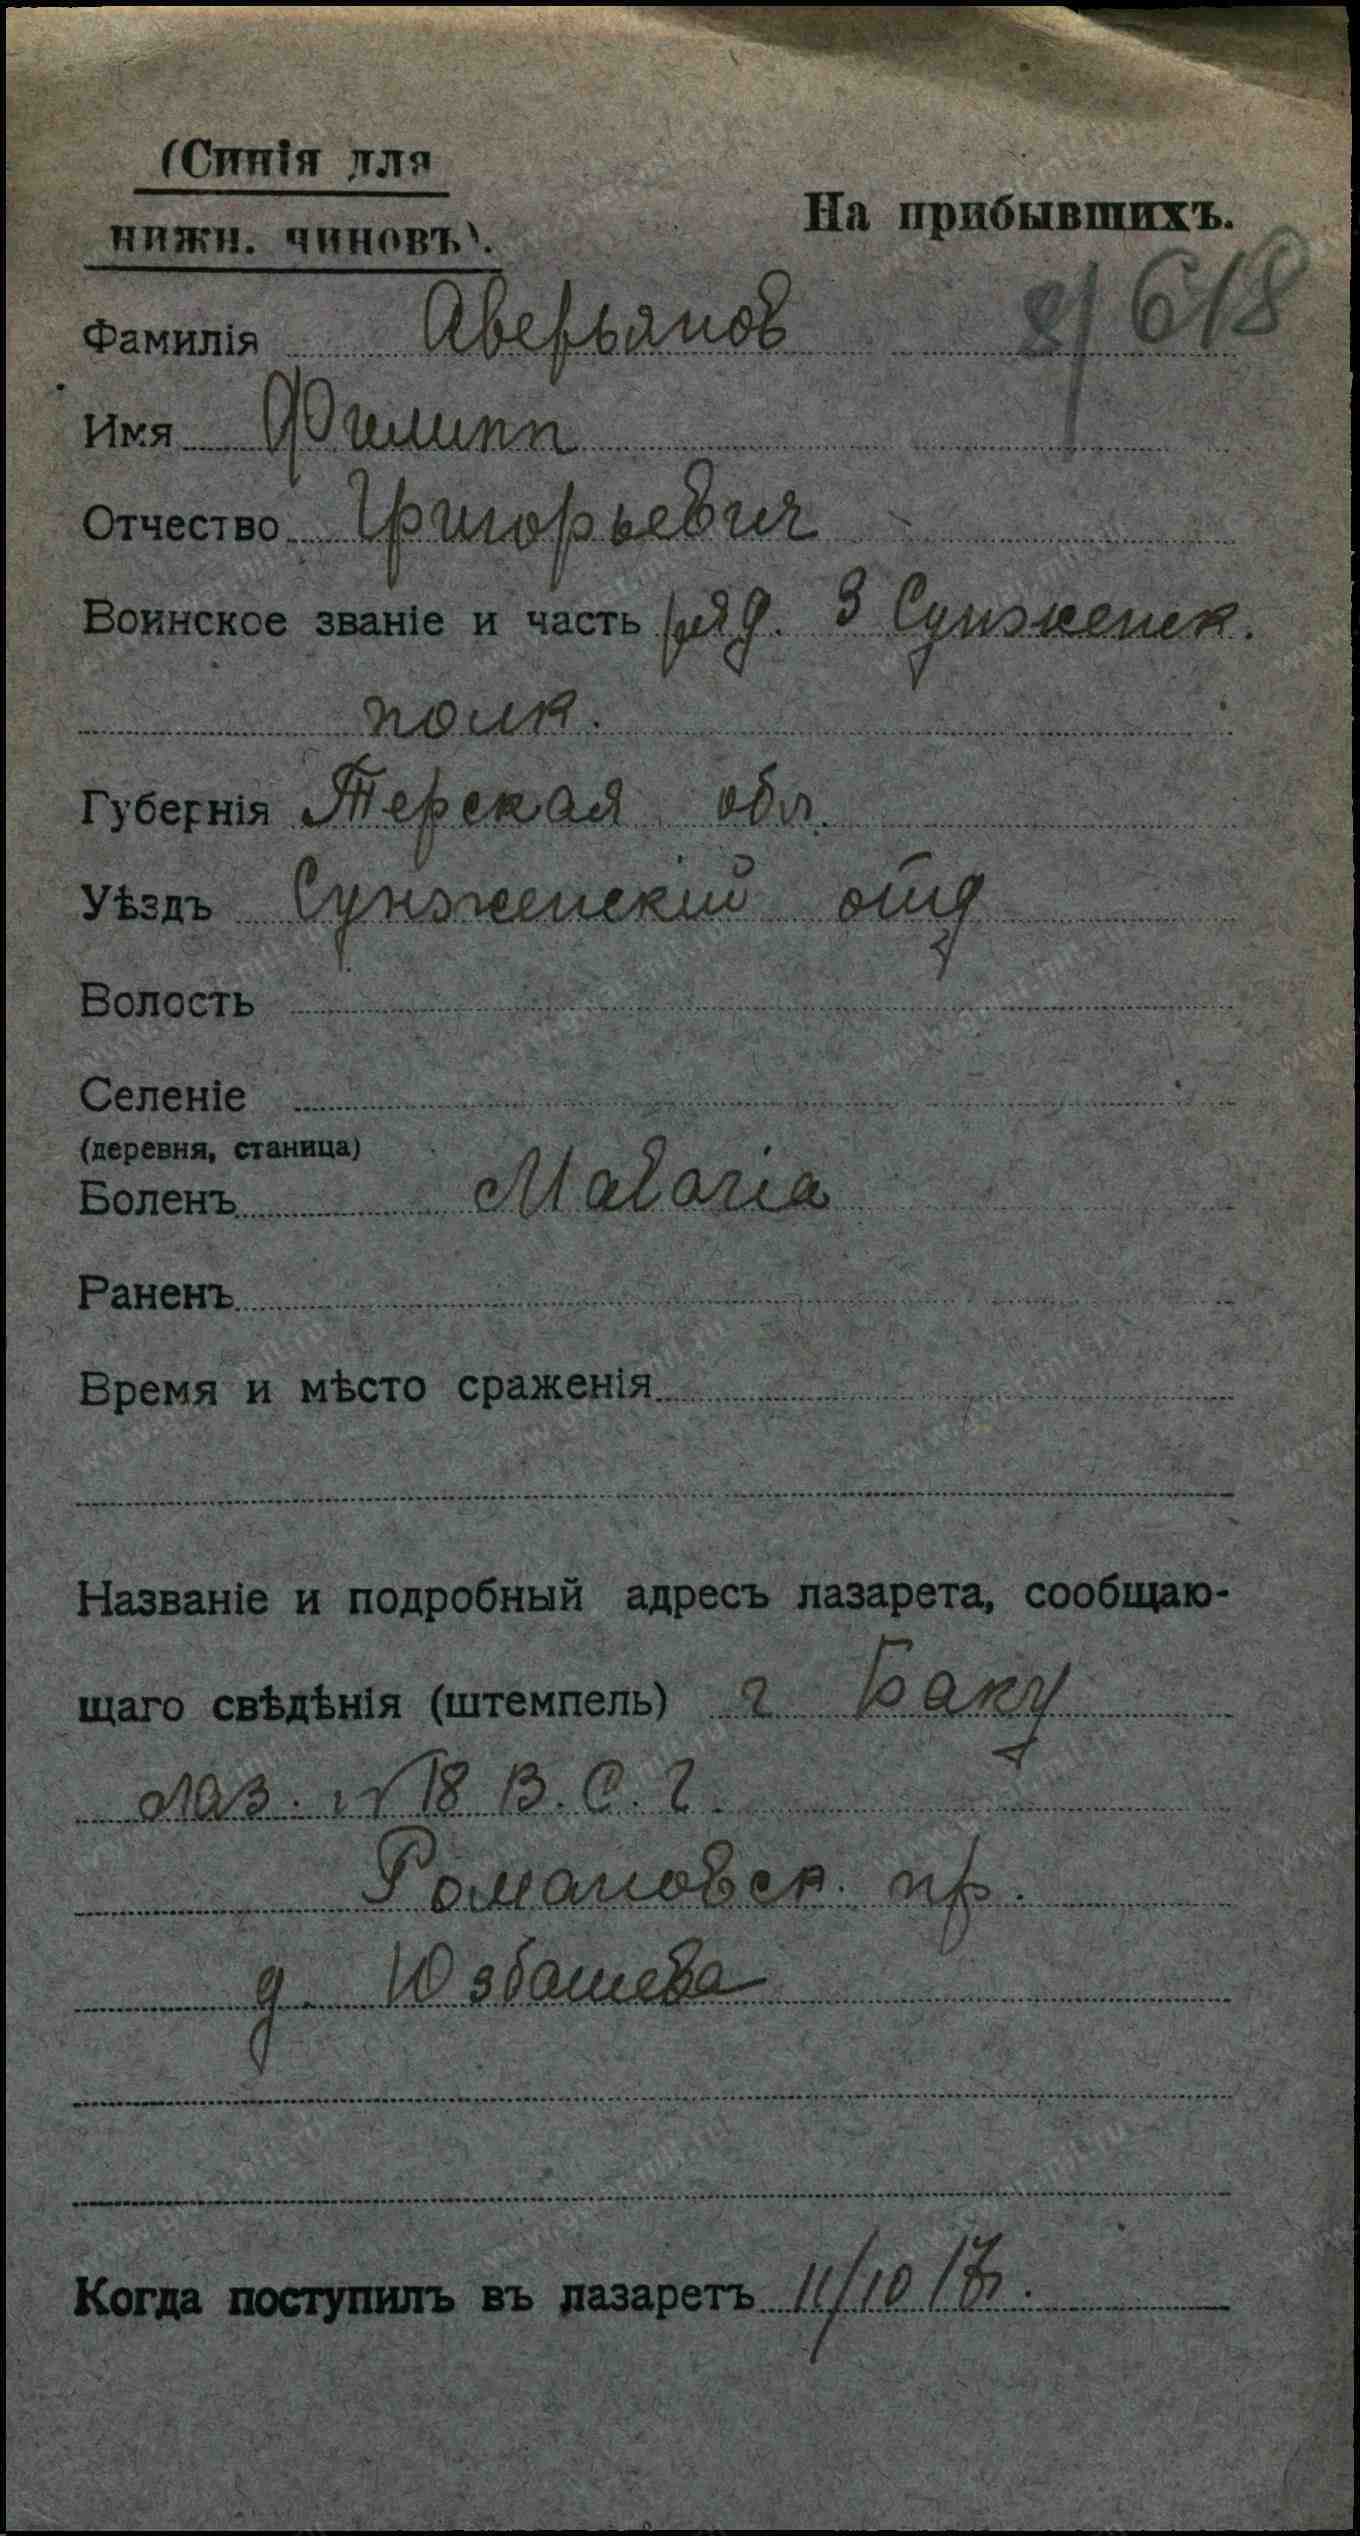 (Синія для
нижн. чиновъ).
На прибывшихъ.
8/618
Фамилія Аверьянов
Имя Филипп
Отчество Григорьевич
Воинское званіе и часть ряд. 3 Сунженск.
полк.
Губернія Терская обл.
Уѣздъ Сунженскій отд
Волость
Селеніе
(деревня, станица)
Боленъ Malaria
Раненъ
Время и мѣсто сраженія
Названіе и подробный адресъ лазарета, сообщаю-
щаго свѣдѣнія (штемпель) г Баку
лаз. № 18 В. С. Г.
Романовск. пр.
д. Юзбашева
Когда поступилъ въ лазаретъ 11/10 17г.